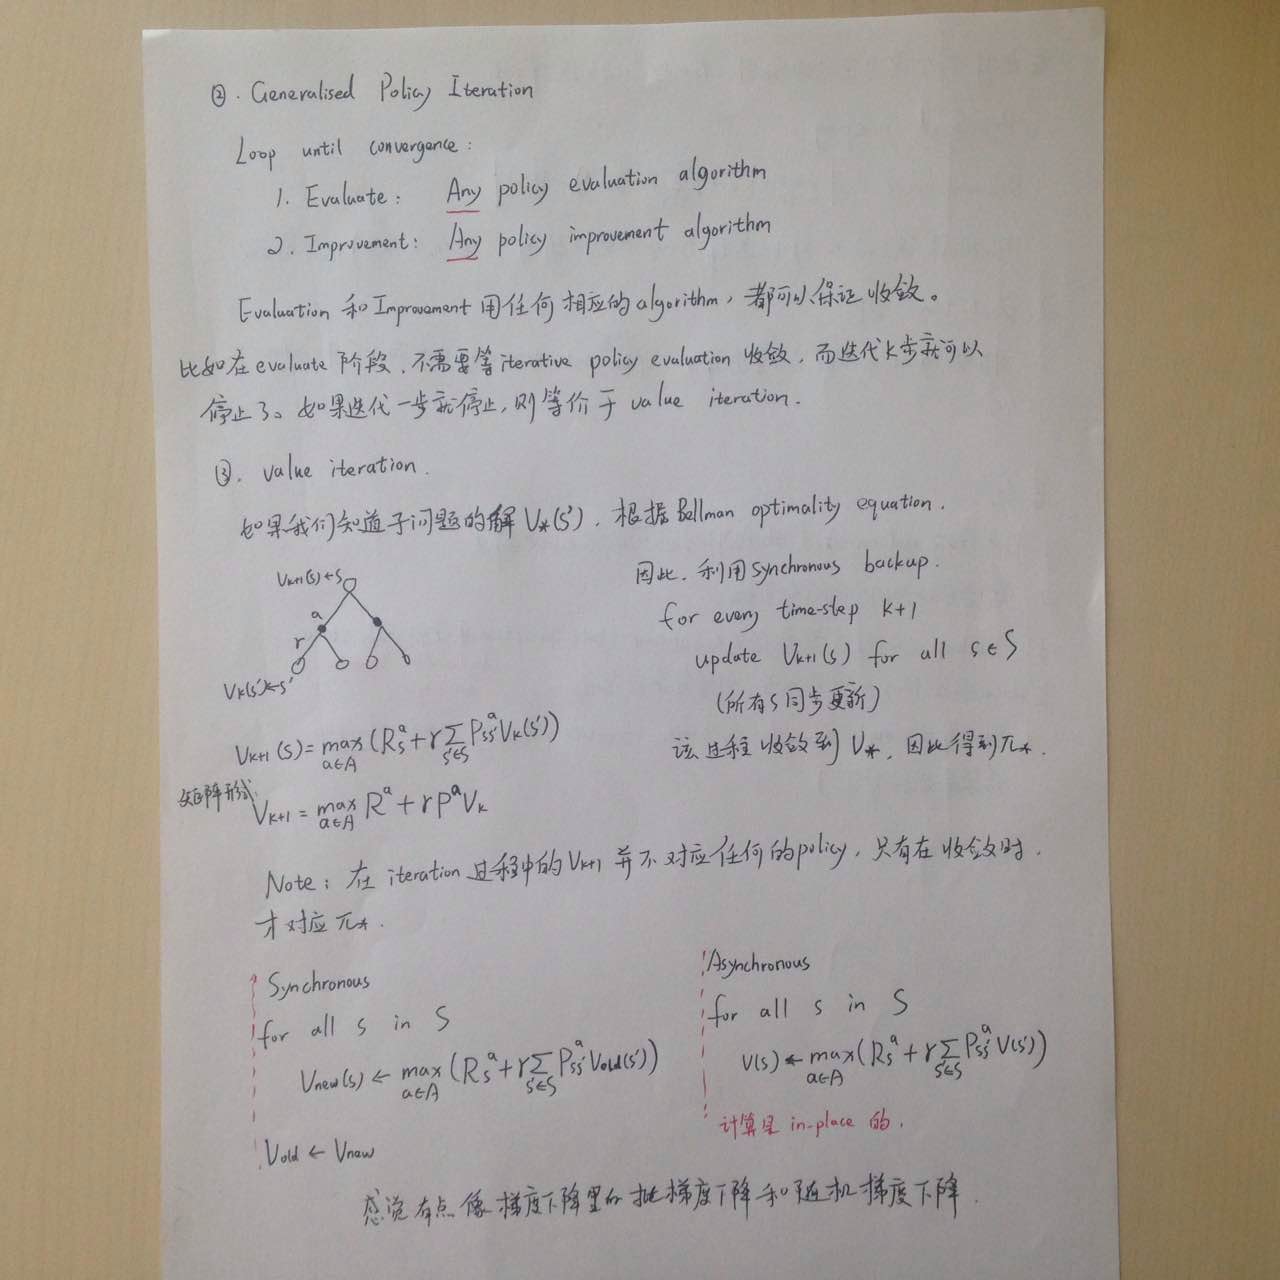 ②. Generalised Policy Iteration
Loop until convergence:
1. Evaluate: Any policy evaluation algorithm
2. Improvement: Any policy improvement algorithm
Evaluation 和 Improvement 用任何相应的 algorithm, 都可以保证收敛。
比如在 evaluate 阶段, 不需要等 iterative policy evaluation 收敛, 而迭代 k 步就可以
停止了。如果迭代一步就停止, 则等价于 value iteration.
③. value iteration.
如果我们知道子问题的解 V*(s'), 根据 Bellman optimality equation.
Vk+1(s)←s
a
r
Vk(s')←s'
Vk+1(s) = max a∈A (R_s^a + γ Σ s'∈S P_ss'^a Vk(s'))
矩阵形式:
Vk+1 = max a∈A R^a + γ P^a Vk
因此, 利用 synchronous backup.
for every time-step k+1
update Vk+1(s) for all s∈S
(所有s同步更新)
该过程收敛到 V*, 因此得到π*.
Note: 在 iteration 过程中的 Vk+1 并不对应任何的policy, 只有在收敛时.
才对应 π*.
Synchronous
for all s in S
Vnew(s) ← max a∈A (R_s^a + γ Σ s'∈S P_ss'^a Vold(s'))
Vold ← Vnew
Asynchronous
for all s in S
V(s) ← max a∈A (R_s^a + γ Σ s'∈S P_ss'^a V(s'))
计算是 in-place 的.
感觉有点像梯度下降里的批梯度下降和随机梯度下降.